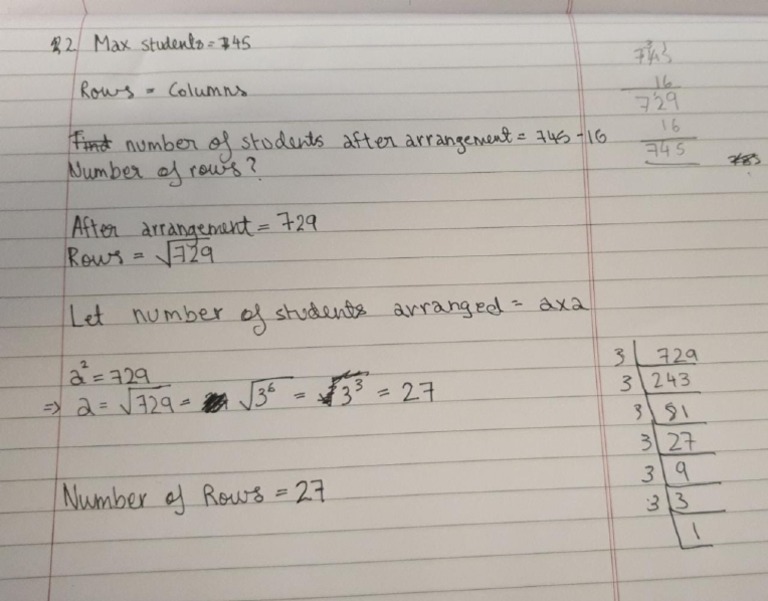 Q2 Max students = 745
Rows = Columns
Find number of students after arrangement = 745 - 16
Number of rows?
After arrangement = 729
Rows = √729
Let number of students arranged = a×a
a² = 729
⇒ a = √729 = √3⁶ = 3³ = 27
Number of Rows = 27
745
16
729
16
745
3 | 729
3 | 243
3 | 81
3 | 27
3 | 9
3 | 3
1